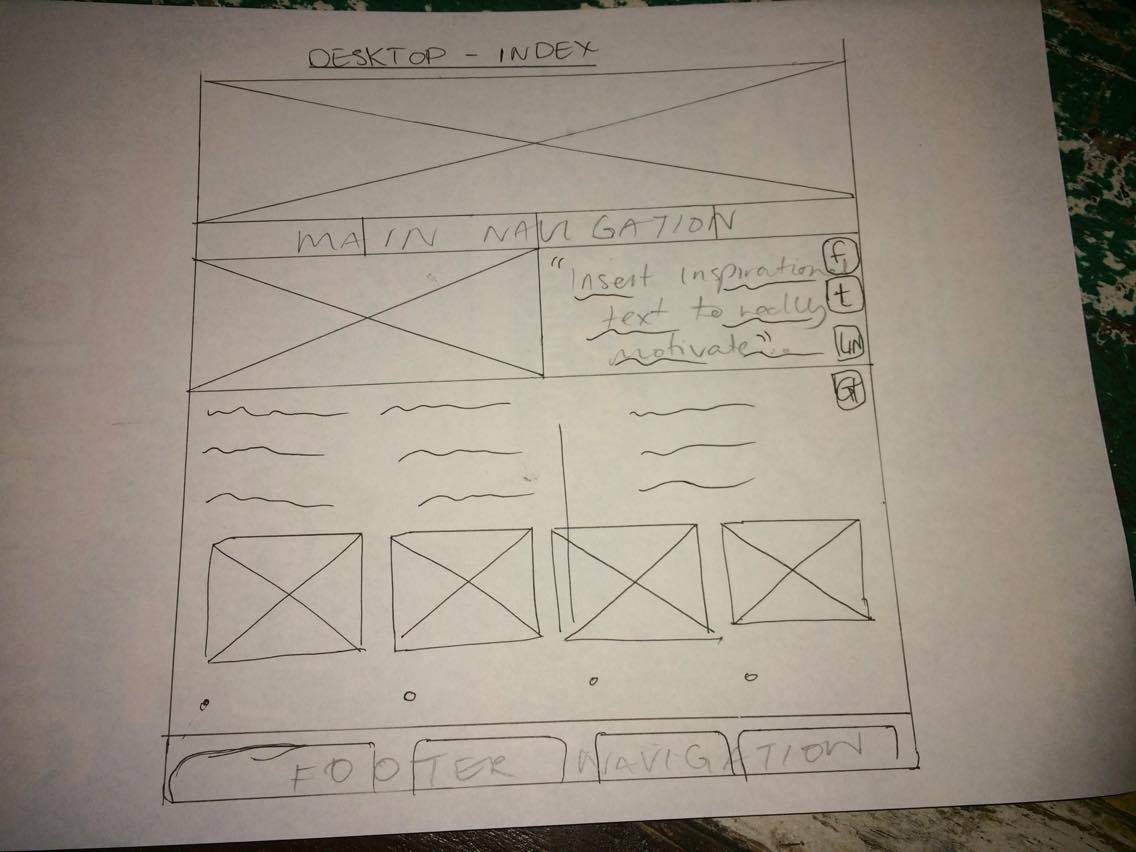 DESKTOP - INDEX
MAIN NAVIGATION
"Insert inspiration
text to really
motivate"
f
t
LIN
G+
FOOTER NAVIGATION